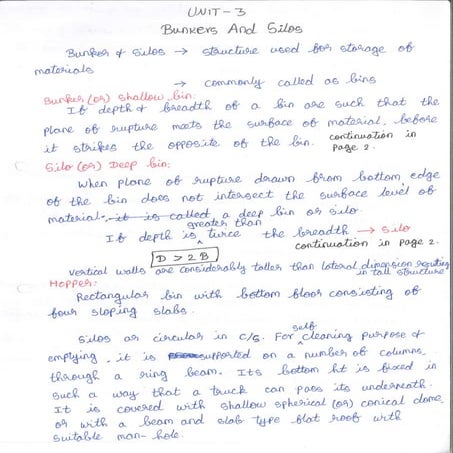 UNIT - 3
Bunkers And Silos
Bunker & Silos → structure used for storage of
materials
→ commonly called as bins
Bunker (or) shallow bin:
If depth & breadth of a bin are such that the
plane of rupture meets the surface of material, before
it strikes the opposite of the bin. continuation in
page 2.
Silo (or) Deep bin:
When plane of rupture drawn from bottom edge
of the bin does not intersect the surface level of
material. it is called a deep bin or silo.
greater than
If depth is ^ twice the breadth → Silo
continuation in page 2.
D > 2B
Vertical walls are considerably taller than lateral dimension resulting
in tall structure
Hopper:
Rectangular bin with bottom floor consisting of
four sloping slabs.
self
Silos are circular in c/s. For ^ cleaning purpose &
emptying, it is supported on a number of columns,
through a ring beam. Its bottom ht is fixed in
such a way that a truck can pass its underneath.
It is covered with shallow spherical (or) conical dome
or with a beam and slab type flat roof with
suitable man-hole.